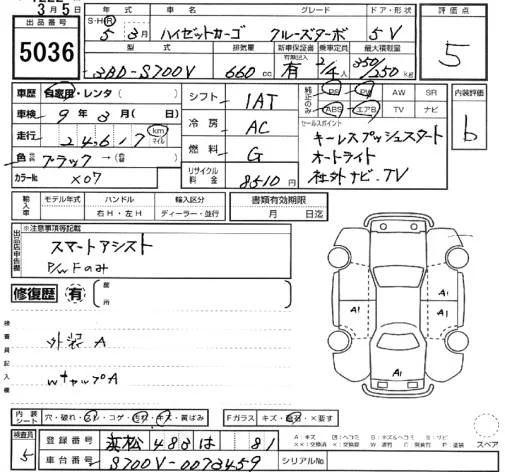 3月5日
出品番号
5036
年式 車名 グレード ドア・形状 評価点
S・H・R 5年 3月 ハイゼットカーゴ クルーズターボ 5V 5
型式 排気量 新車保証書 有無記入 乗車定員 最大積載量
3BD-S700V 660cc 有 2/4人 350/250kg
車歴 自家用・レンタ( )
車検 9年 3月( 日)
走行 24,617 km マイル
色 ブラック→( )
カラーNo X07
シフト IAT
冷房 AC
燃料 G
リサイクル料金 8510円
純正のみ PS PW AW SR
ABS エアB TV ナビ
内装評価
b
セールスポイント
キーレスプッシュスタート
オートライト
社外ナビ・TV
輸入車 モデル年式 ハンドル 輸入区分 書類有効期限
年 右H・左H ディーラー・並行 月 日迄
出品店申告欄 ※注意事項等記載
スマートアシスト
P/WFのみ
修復歴 有 箇所
検査員記入欄
外装A
WキャップA
A1
A1
A1
内装シート 穴・破れ・シミ・コゲ・汚れ・キズ・黄ばみ
Fガラス キズ・飛石・X要す
スペア
検査員 5
登録番号 浜松 483 は 81
車台番号 S700V-0073459
シリアルNo